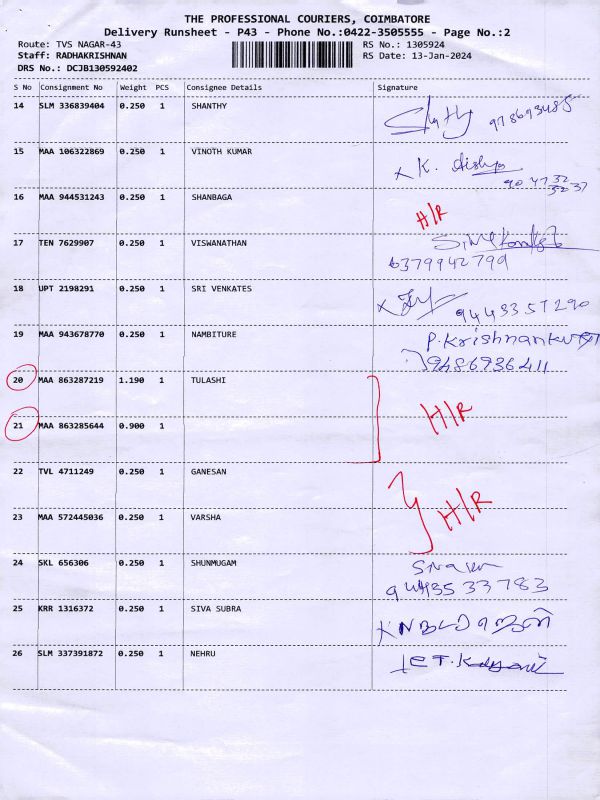 THE PROFESSIONAL COURIERS, COIMBATORE
Delivery Runsheet - P43 - Phone No.:0422-3505555 - Page No.:2
Route: TVS NAGAR-43 RS No.: 1305924
Staff: RADHAKRISHNAN RS Date: 13-Jan-2024
DRS No.: DCJB130592402
S No Consignment No Weight PCS Consignee Details Signature
14 SLM 336839404 0.250 1 SHANTHY
15 MAA 106322869 0.250 1 VINOTH KUMAR x K.
16 MAA 944531243 0.250 1 SHANBAGA H/R
17 TEN 7629907 0.250 1 VISWANATHAN
6379942799
18 UPT 2198291 0.250 1 SRI VENKATES x 9443357290
19 MAA 943678770 0.250 1 NAMBITURE
9486936411
20 MAA 863287219 1.190 1 TULASHI H/R
21 MAA 863285644 0.900 1
22 TVL 4711249 0.250 1 GANESAN H/R
23 MAA 572445036 0.250 1 VARSHA
24 SKL 656306 0.250 1 SHUNMUGAM
9443533783
25 KRR 1316372 0.250 1 SIVA SUBRA
26 SLM 337391872 0.250 1 NEHRU